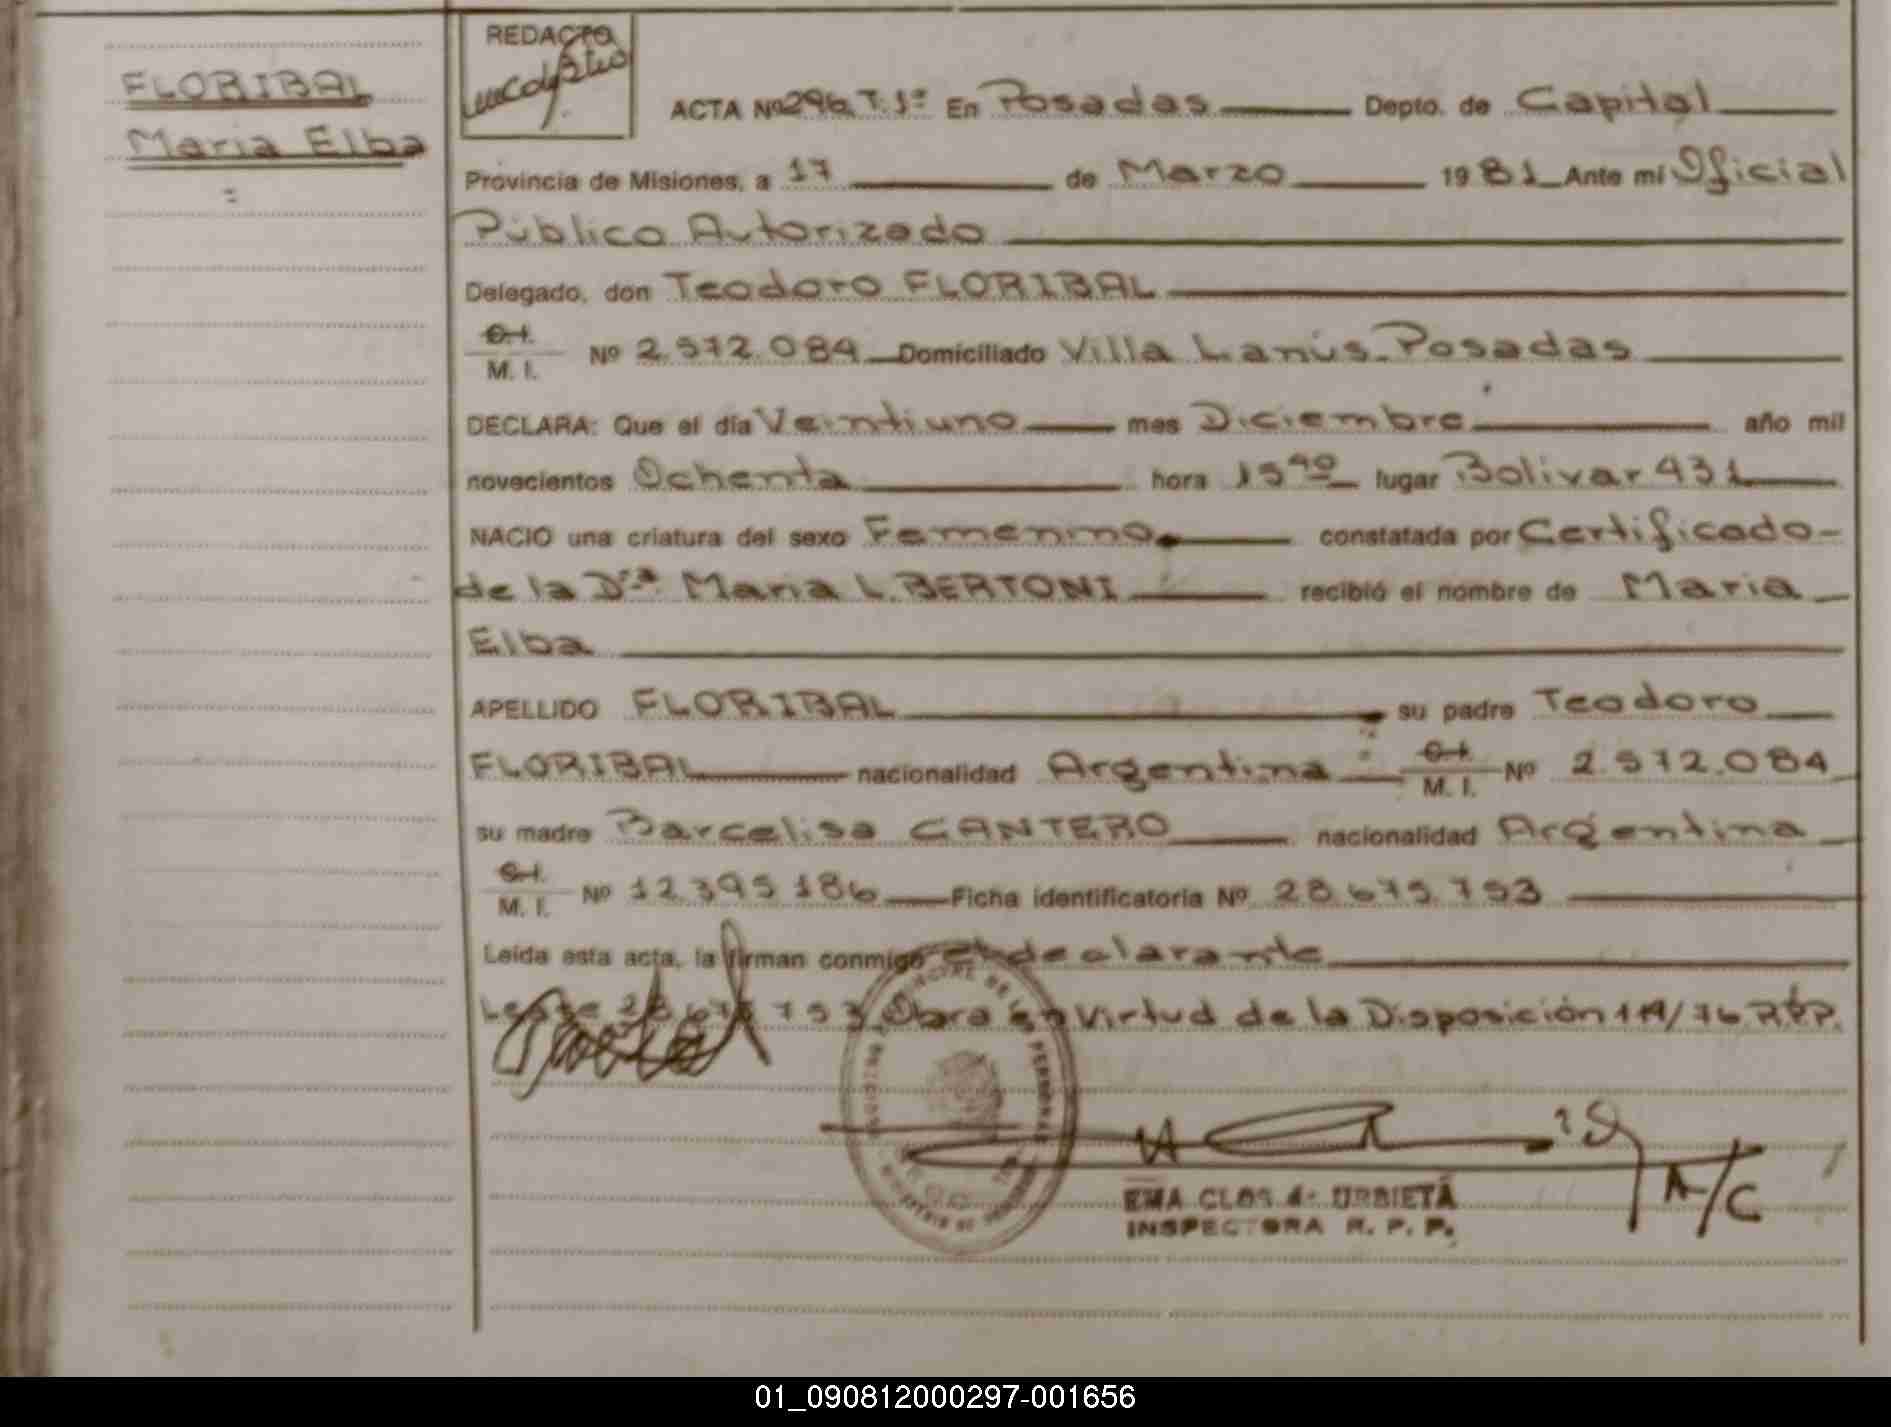 FLORIBAL
Maria Elba
=
REDACTO
ACTA Nº 296 T. 1º En Posadas Depto. de Capital
Provincia de Misiones, a 17 de Marzo 1981 Ante mí Oficial
Público Autorizado
Delegado, don Teodoro FLORIBAL
C.I.
M. I. Nº 2.572.084 Domiciliado Villa Lanús. Posadas
DECLARA: Que el día Veintiuno mes Diciembre año mil
novecientos Ochenta hora 15 40 lugar Bolivar 431
NACIO una criatura del sexo Femenino constatada por Certificado
de la Dra. Maria L. BERTONI recibió el nombre de Maria
Elba
APELLIDO FLORIBAL su padre Teodoro
FLORIBAL nacionalidad Argentina C.I.
M. I. Nº 2.572.084
su madre Barcelisa CANTERO nacionalidad Argentina
C.I.
M. I. Nº 12.395.186 Ficha identificatoria Nº 28.675.753
Leída esta acta, la firman conmigo el declarante
28.675.753 Obra en Virtud de la Disposición /76 R.P.P.
A/C
EMA CLOS de URBIETA
INSPECTORA R. P. P.
01_090812000297-001656